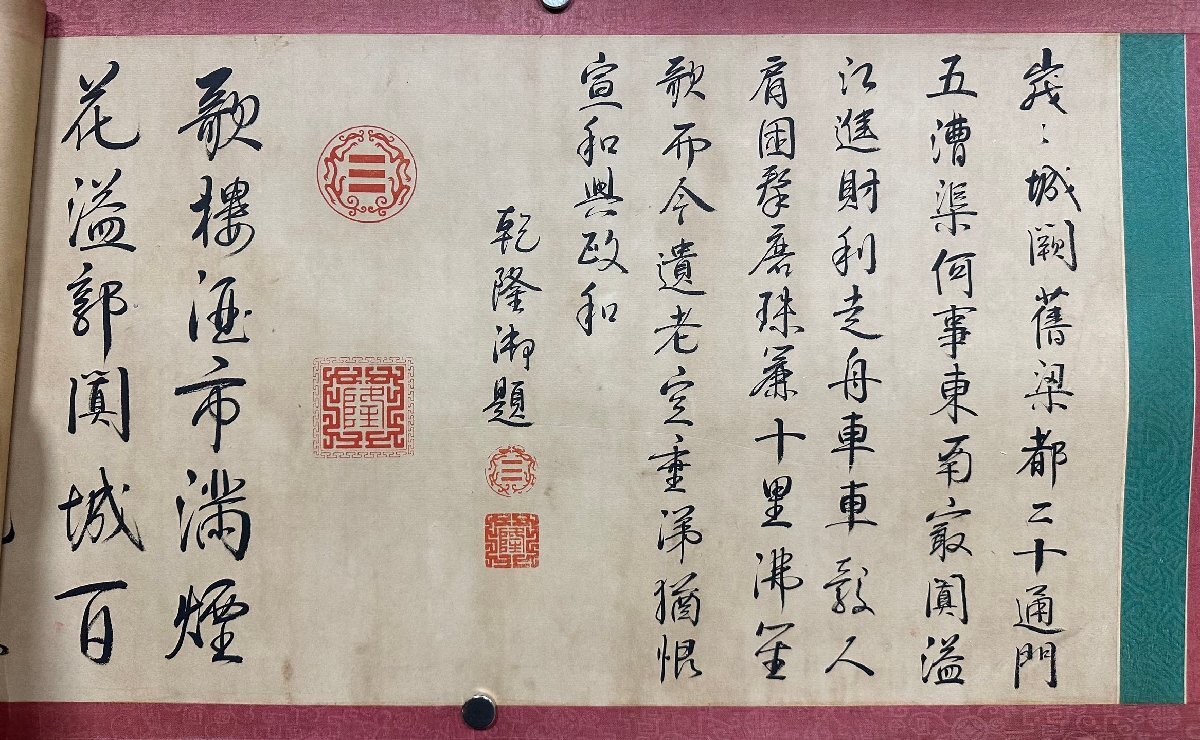 峩〻城闕舊梁都二十通門
五漕渠何事東南最闐溢
江進財利走舟車車轂人
肩困擊磨珠簾十里沸笙
歌而今遺老空垂涕猶恨
宣和與政和
乾隆御題
歌樓酒市滿煙
花溢郭闐城百